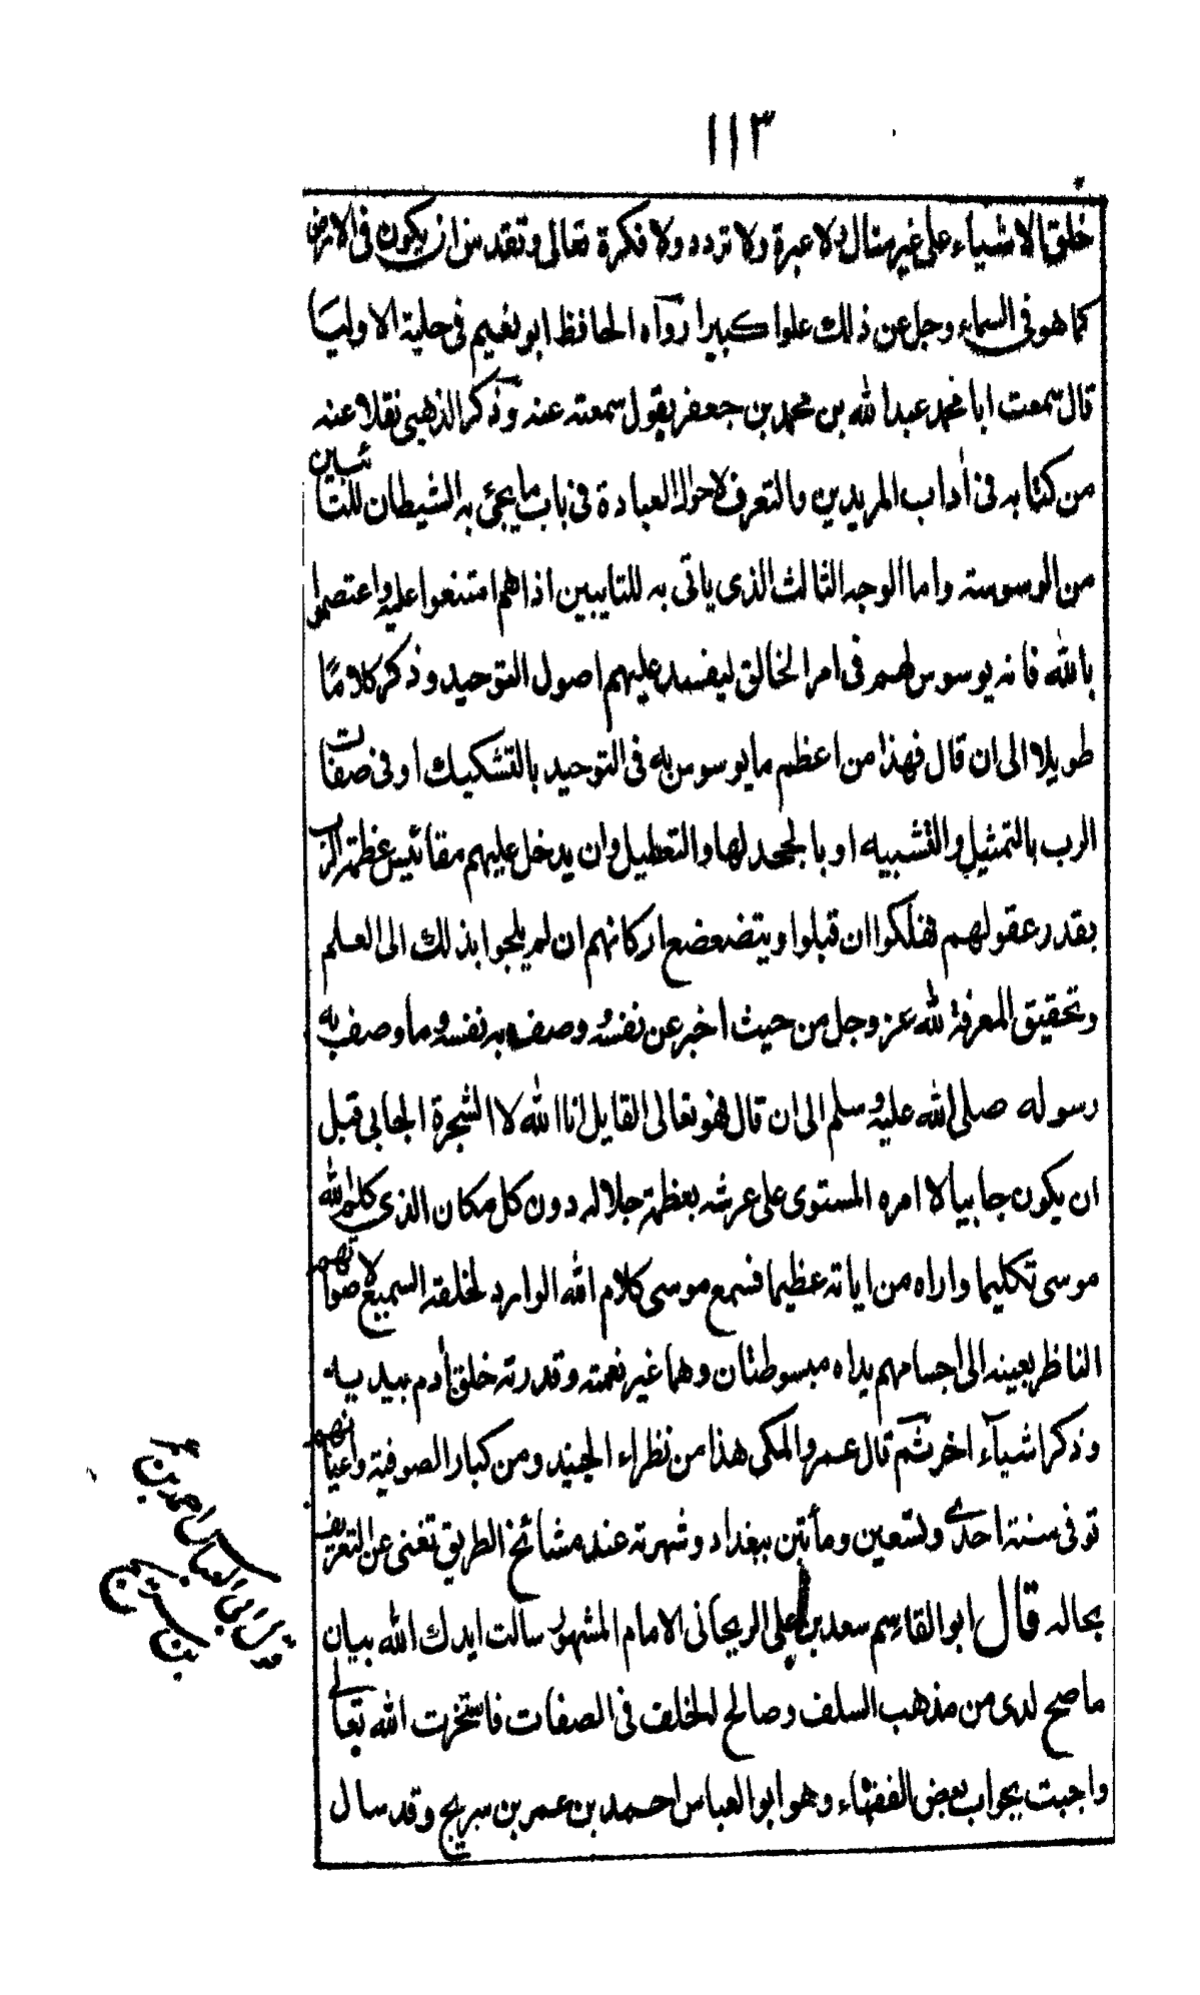 ١١٣
خلق الاشياء على غير مثال بلا عبرة ولا تردد ولا فكرة تعالى وتقدس ان يكون فى الارض
كما هو فى السماء وجل عن ذلك علوا كبيرا رواه الحافظ ابو نعيم فى حلية الاوليا
قال سمعت ابا محمد عبد الله بن محمد بن جعفر يقول سمعته عنه وذكر الذهبى نقلا عنه
من كتابه فى أداب المريدين والتعرف لاحوال العبادة فى باب ما يجئ به الشيطان للتائبين
من الوسوسة واما الوجه الثالث الذى ياتى به للتايبين اذا هم امتنعوا عليه واعتصموا
بالله فانه يوسوس لهم فى امر الخالق ليفسد عليهم اصول التوحيد وذكر كلاما
طويلا الى ان قال فهذا من اعظم ما يوسوس به فى التوحيد بالتشكيك او فى صفات
الرب بالتمثيل والتشبيه او بالجحد لها والتعطيل وان يدخل عليهم مقائيس عظمة الرب
بقدر عقولهم فهلكوا ان قبلوا ويتضعضع اركانهم ان لم يلجوا بذلك الى العلم
وتحقيق المعرفة لله عز وجل من حيث اخبر عن نفسه ووصف به نفسه وما وصف به
رسوله صلى الله عليه وسلم الى ان قال فهو تعالى القايل انا الله لا الشجرة الجايى قبل
ان يكون جاييا لا امره المستوى على عرشه بعظمة جلاله دون كل مكان الذى كلم الله
موسى تكليما واراه من اياته عظيما فسمع موسى كلام الله الوارد لخلقه السميع لاصواتهم
الناظر بعينه الى اجسامهم يداه مبسوطتان وهما غير نعمته وقدرته خلق أدم بيديه
وذكر اشياء اخر ثم قال عمرو المكى هذا من نظراء الجنيد ومن كبار الصوفية واعيانهم
توفى سنة احدى وتسعين ومأتين ببغداد وشهرته عند مشائخ الطريق تغنى عن التعريف
بحاله قال ابو القاسم سعد بن على الريحانى الامام المشهور سالت ايدك الله بيان
ما صح لدى من مذهب السلف وصالح الخلف فى الصفات فاستخرت الله تعالى
واجبت بجواب بعض الفقهاء وهو ابو العباس احمد بن عمر بن سريج وقد سال
ابى العباس احمد بن عمر
بن سريج